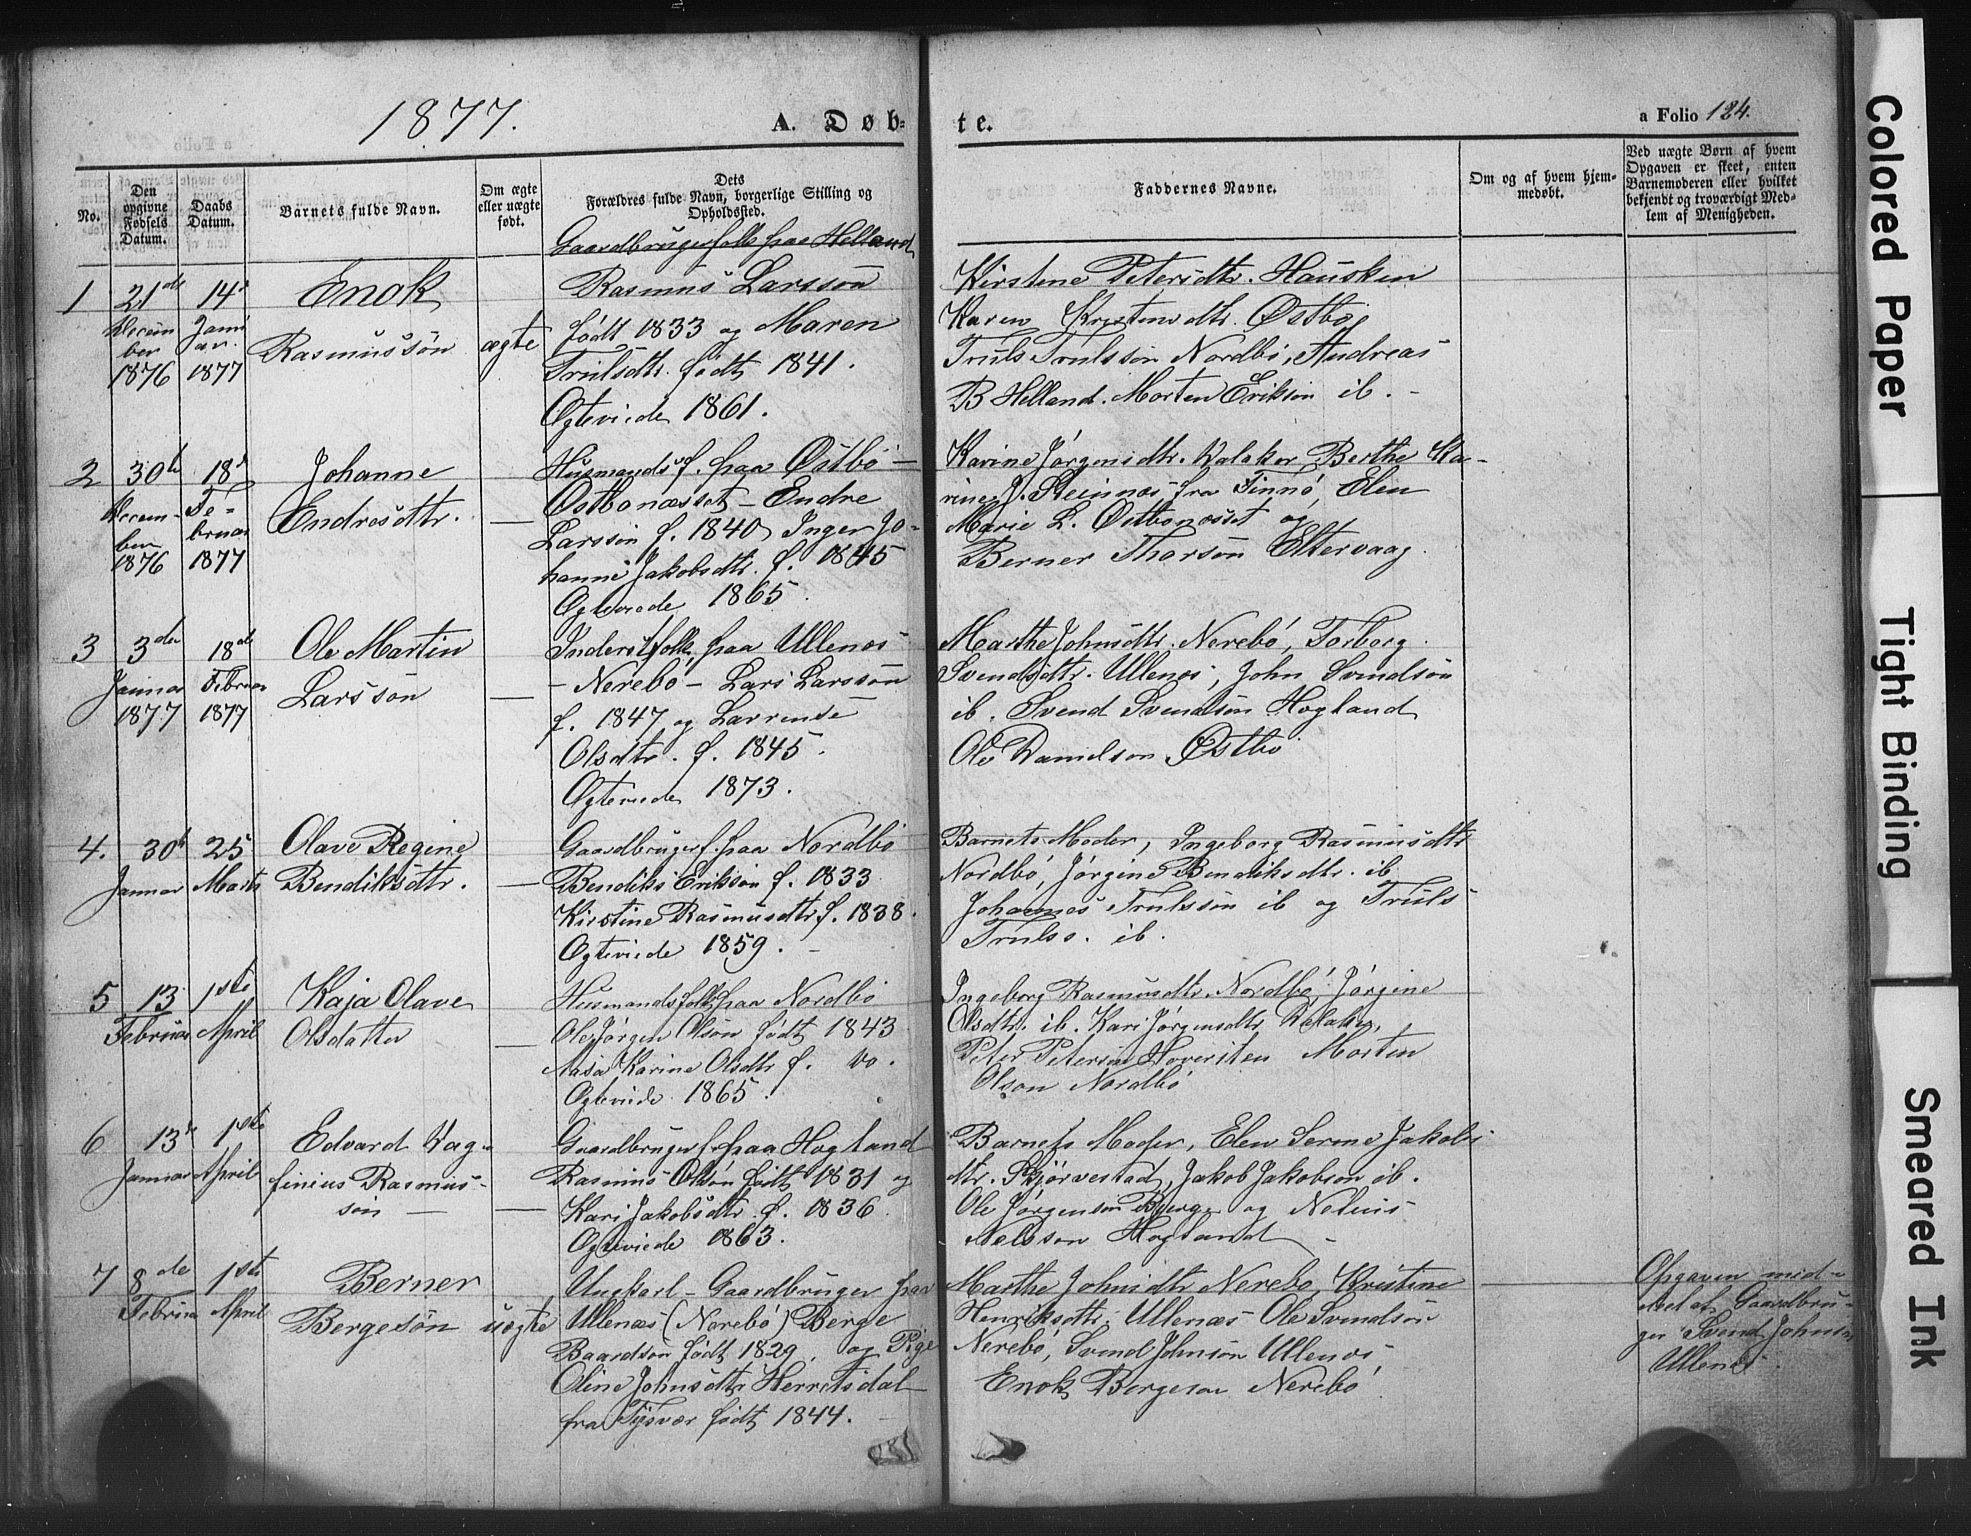 1877.
A. Døb-
te.
a Folio 124.
No.
Den
opgivne
Fødsels
Datum.
Daabs
Datum.
Barnets fulde Navn.
Om ægte
eller uægte
født.
Dets
Forældres fulde Navn, borgerlige Stilling og
Opholdssted.
Faddernes Navne.
Om og af hvem hjem-
medøbt.
Ved uægte Børn af hvem
Opgaven er skeet, enten
Barnemoderen eller hvilket
bekjendt og troværdigt Med-
lem af Menigheden.
1
21de
Decem
ber
1876
14d
Janu
ar.
1877
Enok
Rasmussön
ægte
Gaardbrugerfolk paa Helland
Rasmus Larssön
födt 1833 og Maren
Trulsdtr. födt 1841.
Ogteviede 1861.
Kirstene Petersdtr. Hausken
Karen Kristensdtr. Østbö
Truls Trulssön Nordbö, Andreas
B Helland. Morten Eriksön ib. -
2
30te
Decem-
ber
1876
18d
Fe-
bruar
1877
Johanne
Endresdtr.
—
Husmandsf. paa Østbö -
Østbonæsset - Endre
Larssön f. 1840, Inger Jo-
hanne Jakobsdtr. f. 1845
Ogteviede 1865.
Karine Jörgensdtr. Valaker Berthe Ka-
rine J. Steinnes fra Finnö, Elen
Marie L. Østbonæsset og
Berner Thorsön Eltervaag.
3
3die
Januar
1877
18de
Februar
1877
Ole Martin
Larssön
—
Inderstfolk paa Ullenes
- Nerebö - Lars Larssön
f. 1847 og Larrense
Olsdtr. f. 1845.
Ogteviede 1873.
Marthe Johnsdtr. Nerebö, Torborg
Svendsdtr. Ullenes, John Svendsön
ib. Svend Svendsön Hogland
Ole Danielson Østbö
4.
30te
Januar
25
Marts
Olave Regine
Bendiksdtr.
—
Gaardbrugerf. paa Nordbö
Bendiks Eriksön f. 1833
Kirstine Rasmusdtr f. 1838.
Ogteviede 1859. -
Barnets Moder, Ingeborg Rasmusdtr
Nordbö, Jörgine Bendiksdtr. ib
Johannes Trulssön ib og Truls
Trulss. ib.
5
13
Februar
1ste
April
Kaja Olave
Olsdatter
—
Husmandsfolk paa Nordbö
Ole Jörgen Olsön födt 1843
Aasa Karine Olsdtr f. do.
Ogteviede 1865.
Ingeborg Rasmusdtr. Nordbö, Jörgine
Olsdtr. ib. Kari Jörgensdtr Valaker,
Peter Petersön Hoversten Morten
Olson Nordbö
6
13de
Januar
1ste
April
Edvard Vag-
finius Rasmus-
sön —
—
Gaardbrugerf. paa Hogland
Rasmus Olsön födt 1831 og
Kari Jakobsdtr. f. 1836
Ogteviede 1863.
Barnets Moder, Elen Serine Jakobs
dtr. Skjörvestad, Jakob Jakobson ib.
Ole Jörgensön Bjerge og Nelius
Nelsson Hogland -
7
8de
Februar
1ste
April
Berner
Bergesön
uægte
Ungkarl - Gaardbruger paa
Ullenæs (Nerebö) Berge
Baardsön födt 1829, og Pige
Oline Johnsdtr Herretsdal
fra Tysvær födt 1844. -
Marthe Johnsdtr Nerebö, Kristine
Henriksdtr. Ullenæs Ole Svendsön
Nerebö, Svend Johnsön Ullenes
Enok Bergeson Nerebö
Opgaven med-
delt af Gaardbru-
ger Svend Johns.
Ullenes.
Colored Paper
Tight Binding
Smeared Ink